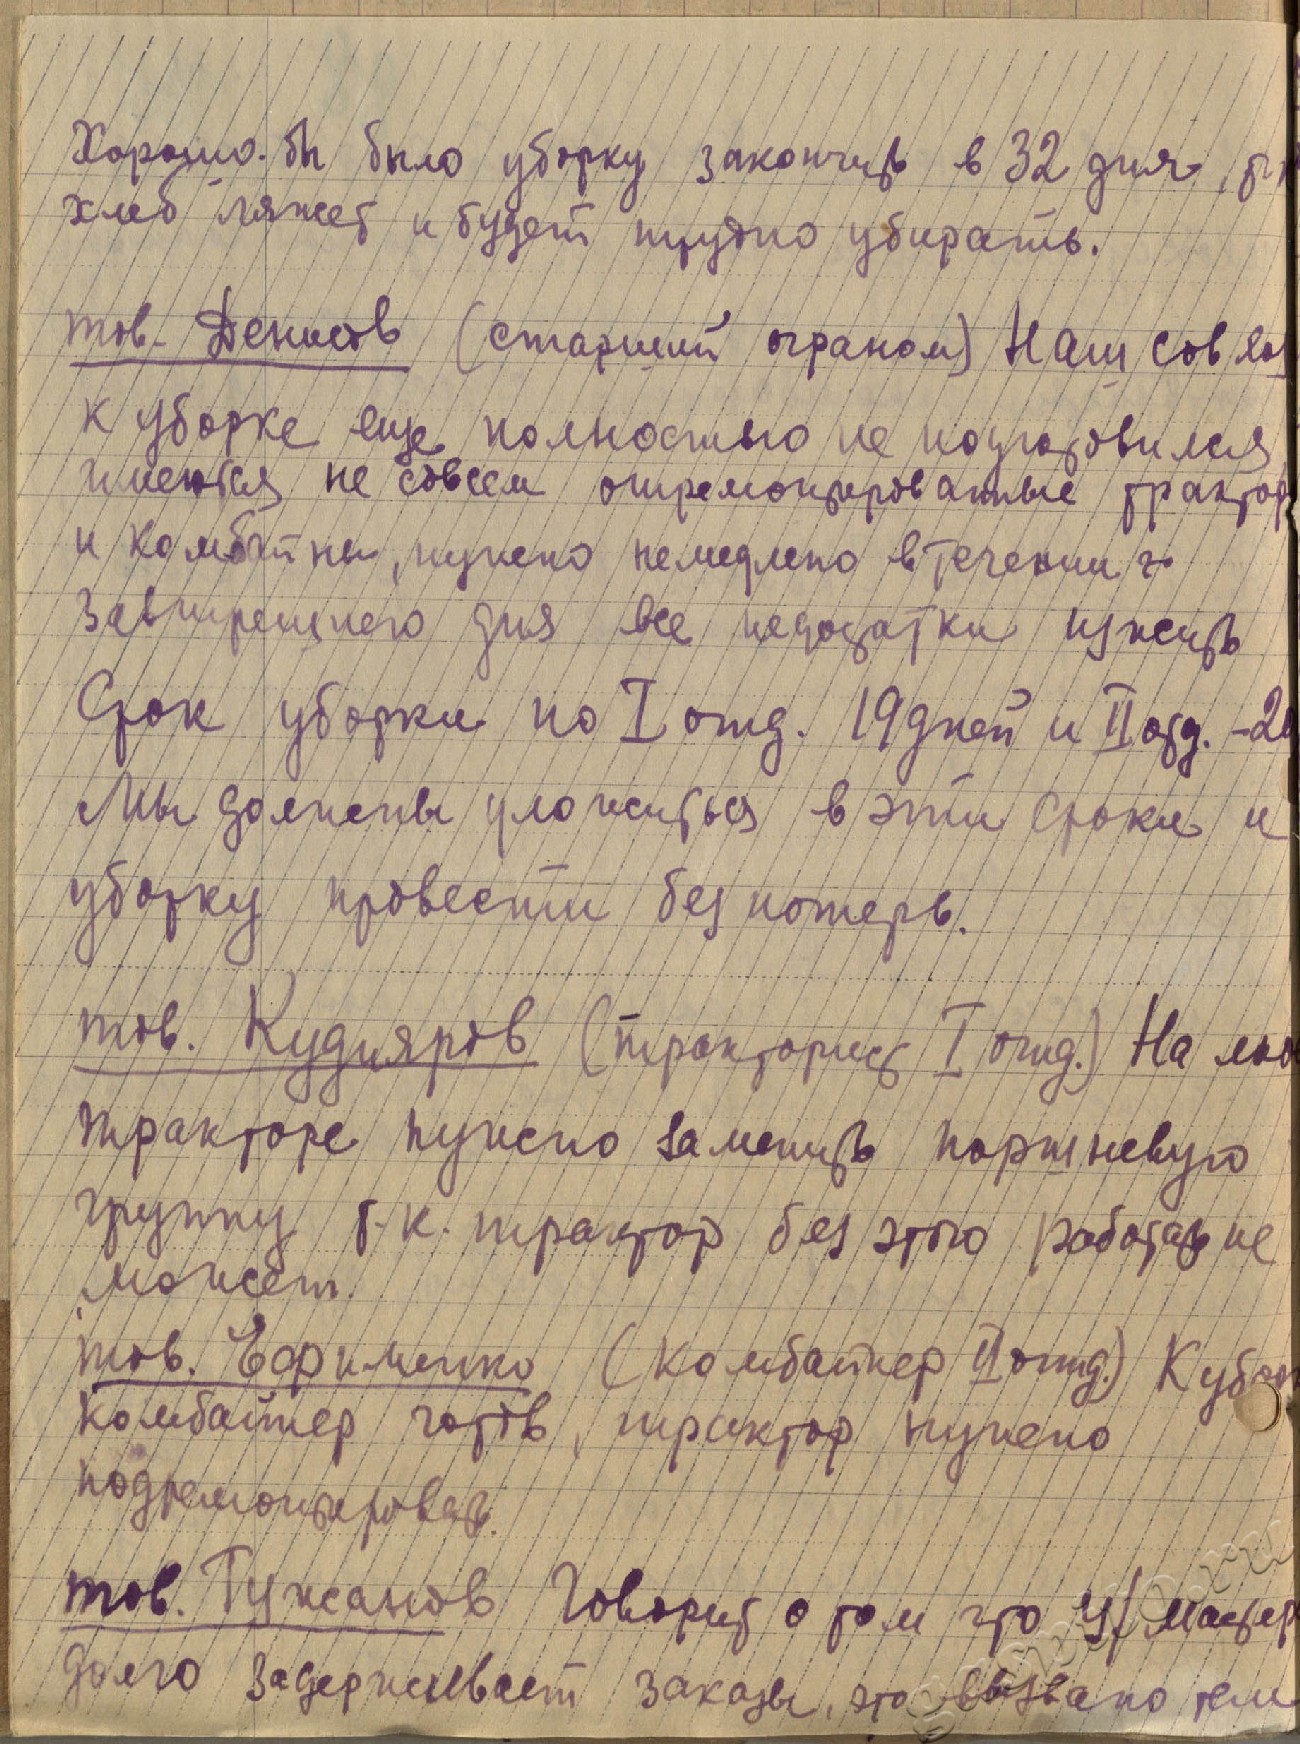 Хорошо бы было уборку закончить в 32 дня, т.к
хлеб ляжет и будет трудно убирать.
тов. Денисов (старший огроном) Наш совхоз
к уборке еще полностью не подготовился,
имеются не совсем отремонтированные трактор
и комбайны, нужно немедлено в течении
завтрешнего дня все недостатки изжить
Срок уборки по I отд. 19 дней и II отд. - 20
Мы должны уложиться в эти сроки и
уборку провести без потерь.
тов. Кудияров (тракторист I отд.) На мое
тракторе нужно заменить поршневую
группу т.к. трактор без этого работать не
может.
тов. Ефименко (комбайнер II отд.) К убор
комбайнер готов, трактор нужно
подремонтировать.
тов. Тужанов Говорит о том что У/мастер
долго задерживает заказы, это вызвано тем